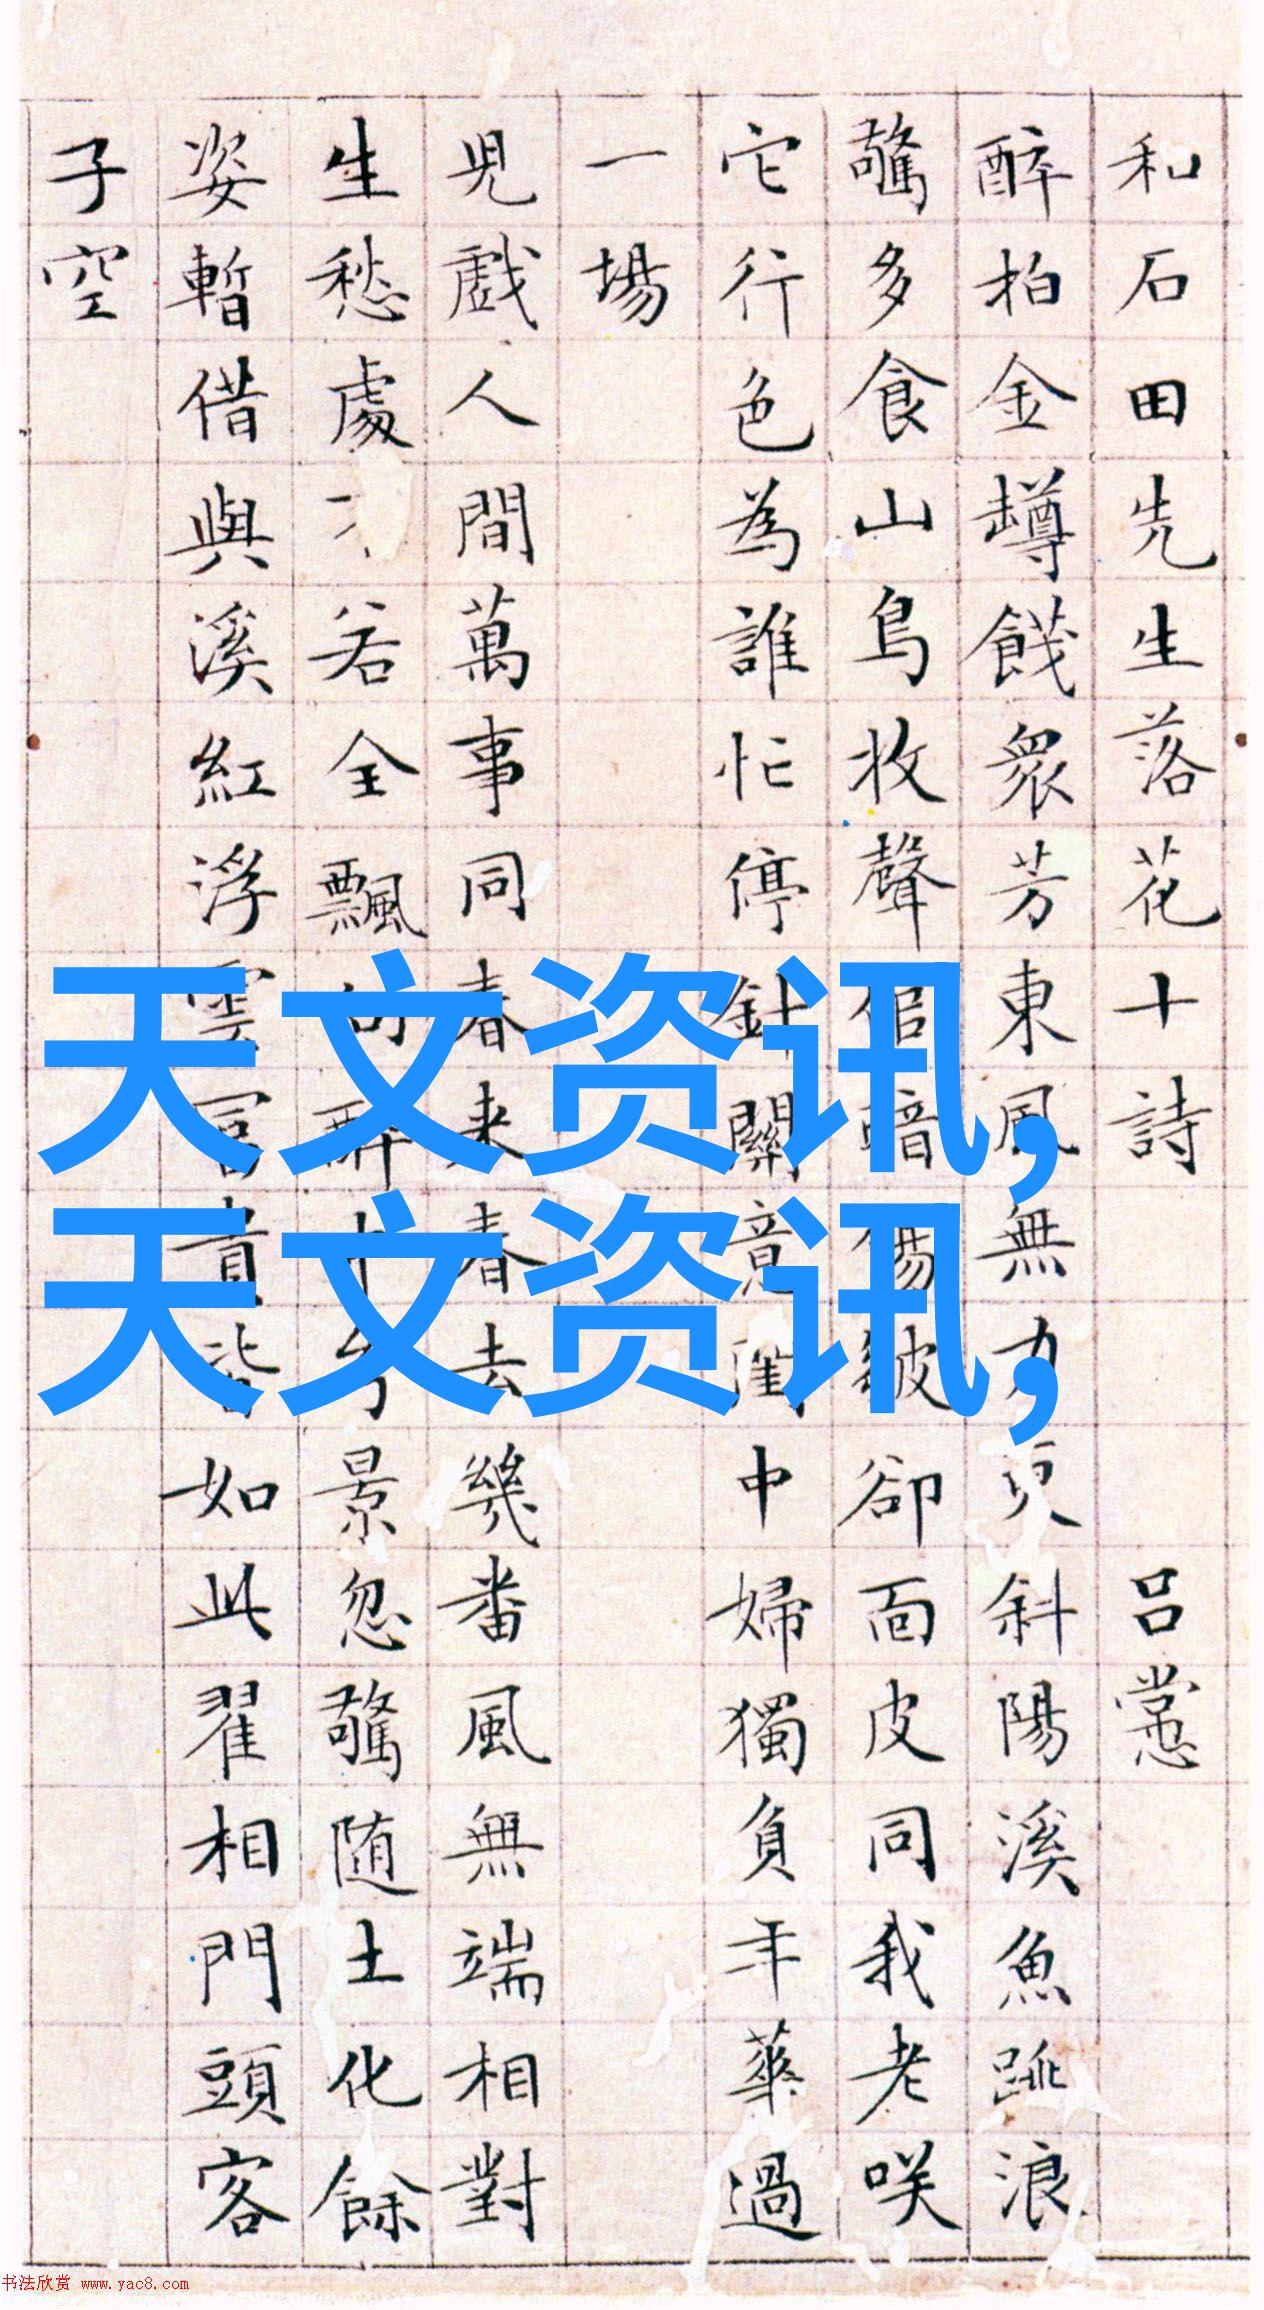 和石田先生落花十詩 呂㦂
醉拍金罇餞衆芳東風無力更斜陽溪魚跳浪
驚多食山鳥收聲倍暗傷皺卻面皮同我老咲
它行色為誰忙停針關意閨中婦獨負年華過
一場
兒戲人間萬事同春来春去幾番風無端相對
生愁處不若全飄向醉中景忽驚随土化餘
姿暫借與溪紅浮雲冨貴皆如此翟相門頭客
子空
天文资讯,
天文资讯,
书法欣赏 www.yac8.com